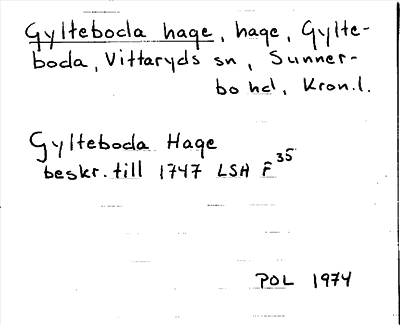 Gylteboda hage, hage, Gylte-
boda, Vittaryds sn, Sunner-
bo hd, Kron.l.
Gylteboda Hage
beskr. till 1747 LSA F 35
POL 1974